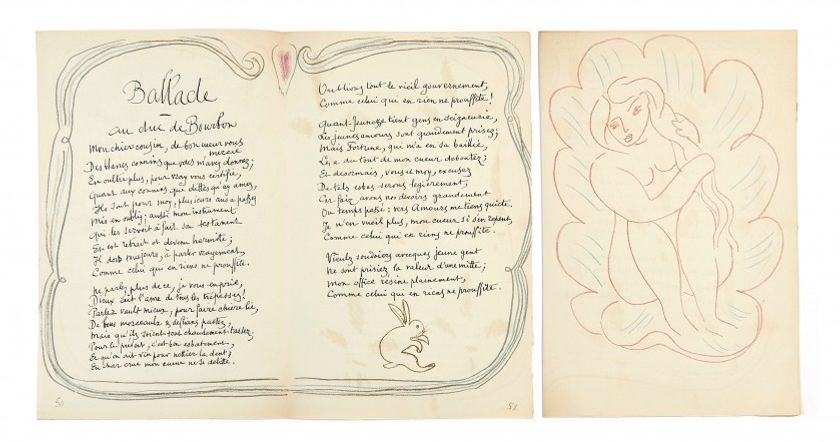 Ballade
au duc de Bourbon
Mon chier cousin, de bon cueur vous
mercie
Des blancs connins que vous m'avez donnez;
En oultre plus, pour vray vous certiffie,
Quant aux connins que dittes qu'ay amez,
Ilz sont pour moy, plusieurs ans a passez
Mis en oubly; aussi mon instrument
Qui les servoit a fait son testament
Et est retrait et devenu hermite;
Il dort toujours, à parler vrayement,
Comme celui qui en riens ne prouffite.
Ne parlez plus de ce, je vous en prie,
Dieux ait l'ame de tous les trespassez!
Parler vault mieulx, pour faire chière lie,
De bons morceaulx et de frians pastez,
Mais qu'ilz soient tout chaudement tastez.
Pour le présent, c'est bon esbatement,
Et qu'on ait vin pour nettier la dent;
En char crue mon cueur ne se délite.
50
Oublions tout le vieil gouvernement,
Comme celui qui en rien ne prouffite!
Quant Jeunesse tient gens en seigneurie,
Les jeunes amours sont grandement prisez;
Mais Fortune, qui m'a en sa baillie,
Les a du tout de mon cueur deboutez;
Et desormais, vous et moy, excusez
De telz esbas serons legierement;
Car faiz avons nos devoirs grandement
Ou temps passé: vers Amours me tiens quicte.
Je n'en vueil plus, mon cueur si s'en repent,
Comme celui qui en riens ne prouffite.
Vieulz soudoiers avecques jeune gent
Ne sont prisiez la valeur d'une mitte;
Mon office resine plainement,
Comme celui qui en riens ne prouffite.
51